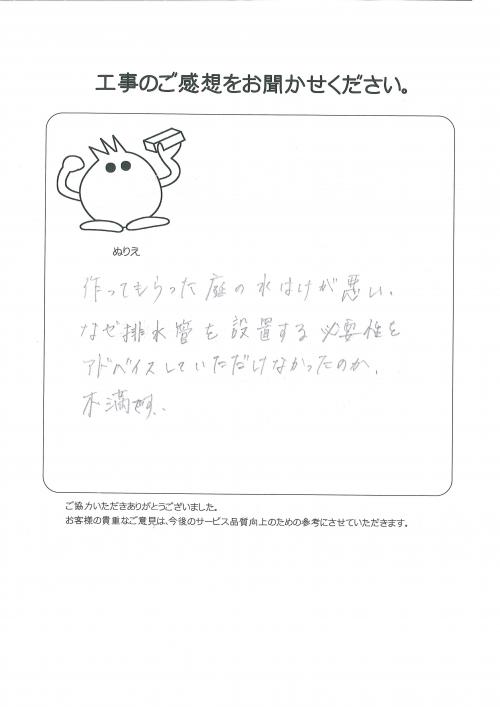 工事のご感想をお聞かせください。
ぬりえ
作ってもらった庭の水はけが悪い、
なぜ排水管を設置する必要性を
アドバイスしていただけなかったのか、
不満です、
ご協力いただきありがとうございました。
お客様の貴重なご意見は、今後のサービス品質向上のための参考にさせていただきます。